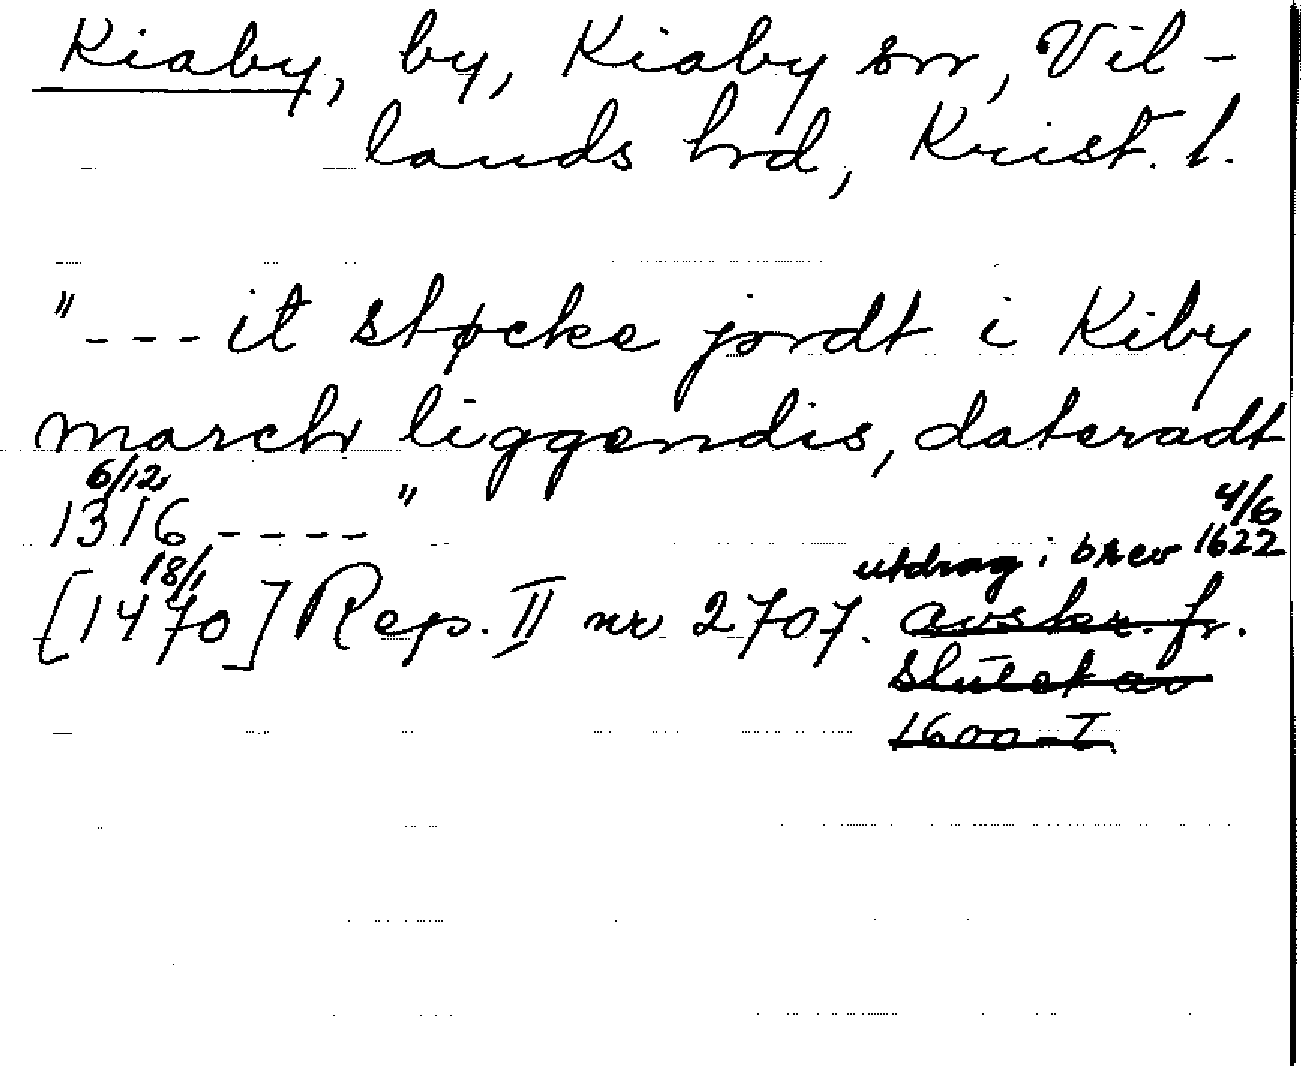 Kiaby, by, Kiaby sn, Vil-
lands hrd, Krist. l.
"---it støcke jordt i Kiby
march liggendis, dateradt
6/12
1316 ----"
4/6
utdrag i brev 1622
18/1
[1470] Rep. II nr 2707. avskr. fr.
slutet av
1600-T